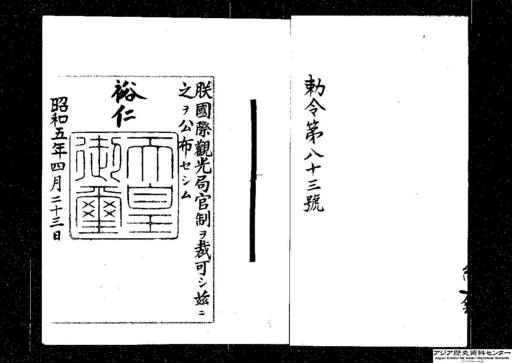 勅令第八十三號
朕國際觀光局官制ヲ裁可シ玆ニ
之ヲ公布セシム
裕仁
天皇
御璽
昭和五年四月二十三日
アジア歴史資料センター
Japan Center for Asian Historical Records